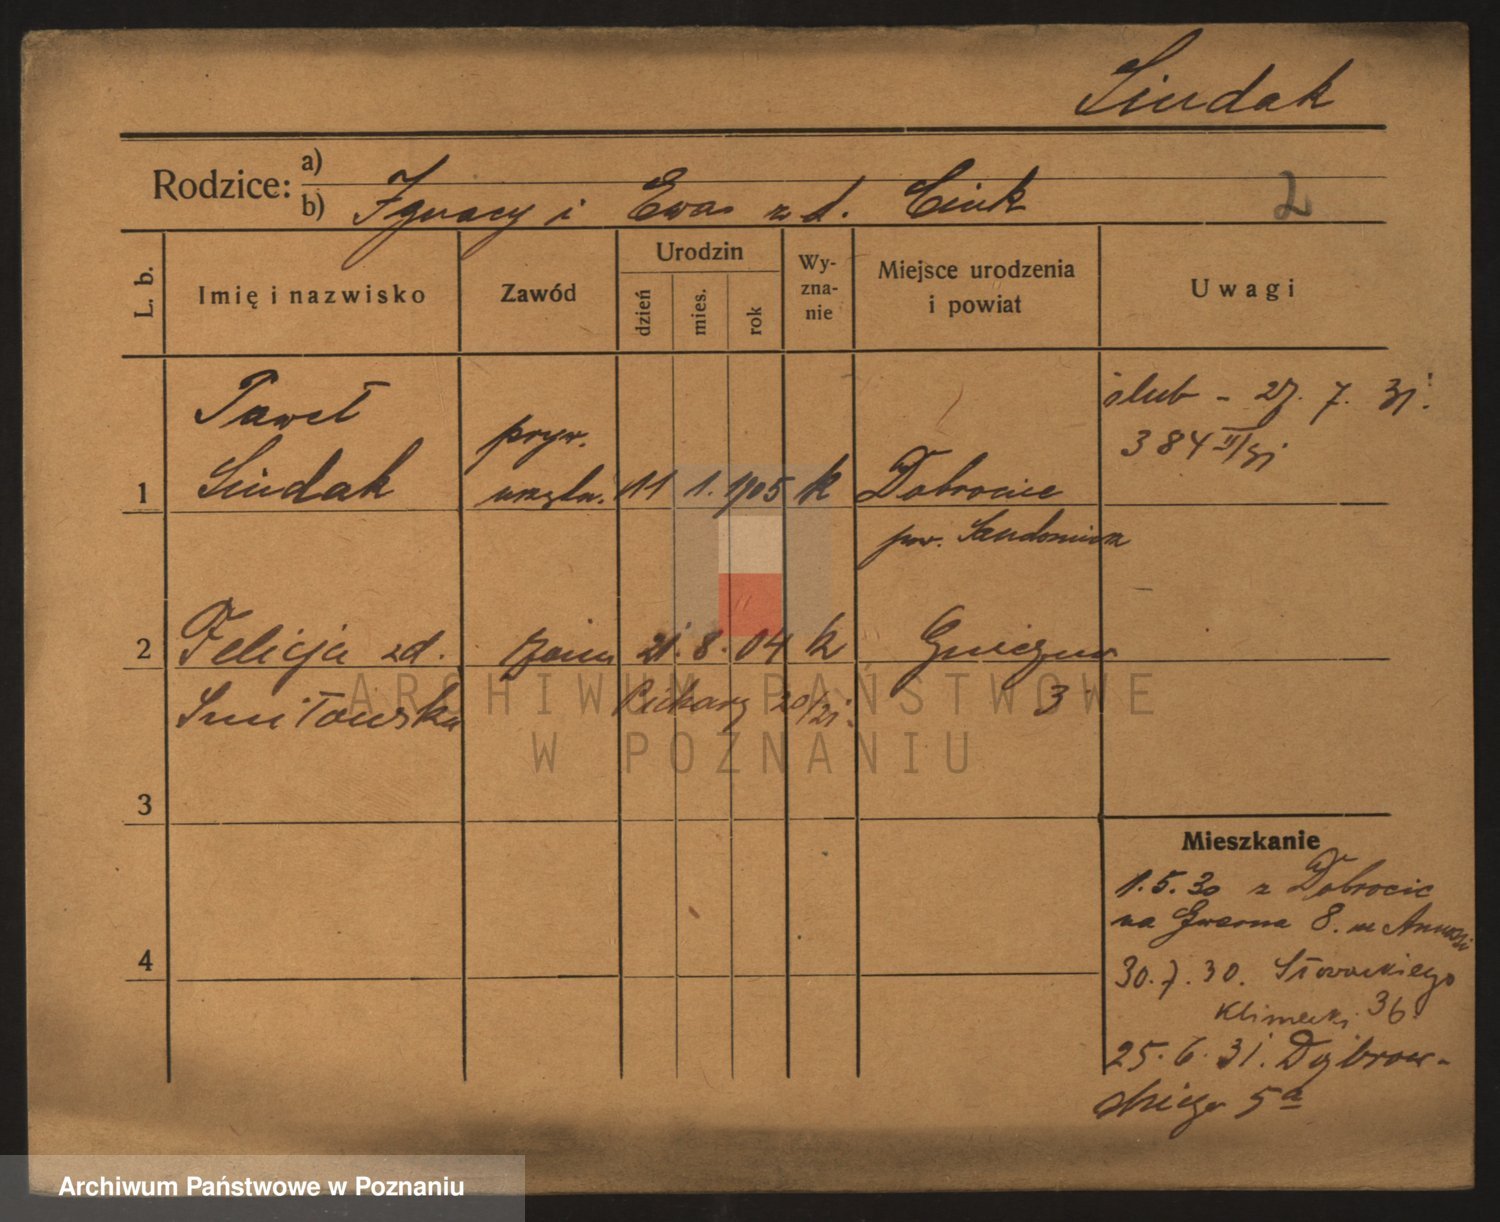 Siudak
Rodzice:
a)
b) Ignacy i Ewa z d. Ciuk
2
L. b.
Imię i nazwisko
Zawód
Urodzin
dzień
mies.
rok
Wy-
zna-
nie
Miejsce urodzenia
i powiat
Uwagi
Paweł
ślub - 27. 7. 31.
pryw.
384 II/31
1 Siudak 11 1. 1905 k Dobrocice
pow. Sandomierz
2 Felicja zd. żona 21. 8. 04 k Gniezno
Smiłowska Piekary 20/21. 3
3
Mieszkanie
1.5.30 z Dobrocic
na Gwarna 8. m
4
30.7.30. Słowackiego
Klimecki 36
25.6.31. Dąbrow-
skiego 5a
ARCHIWUM PAŃSTWOWE
W POZNANIU
Archiwum Państwowe w Poznaniu